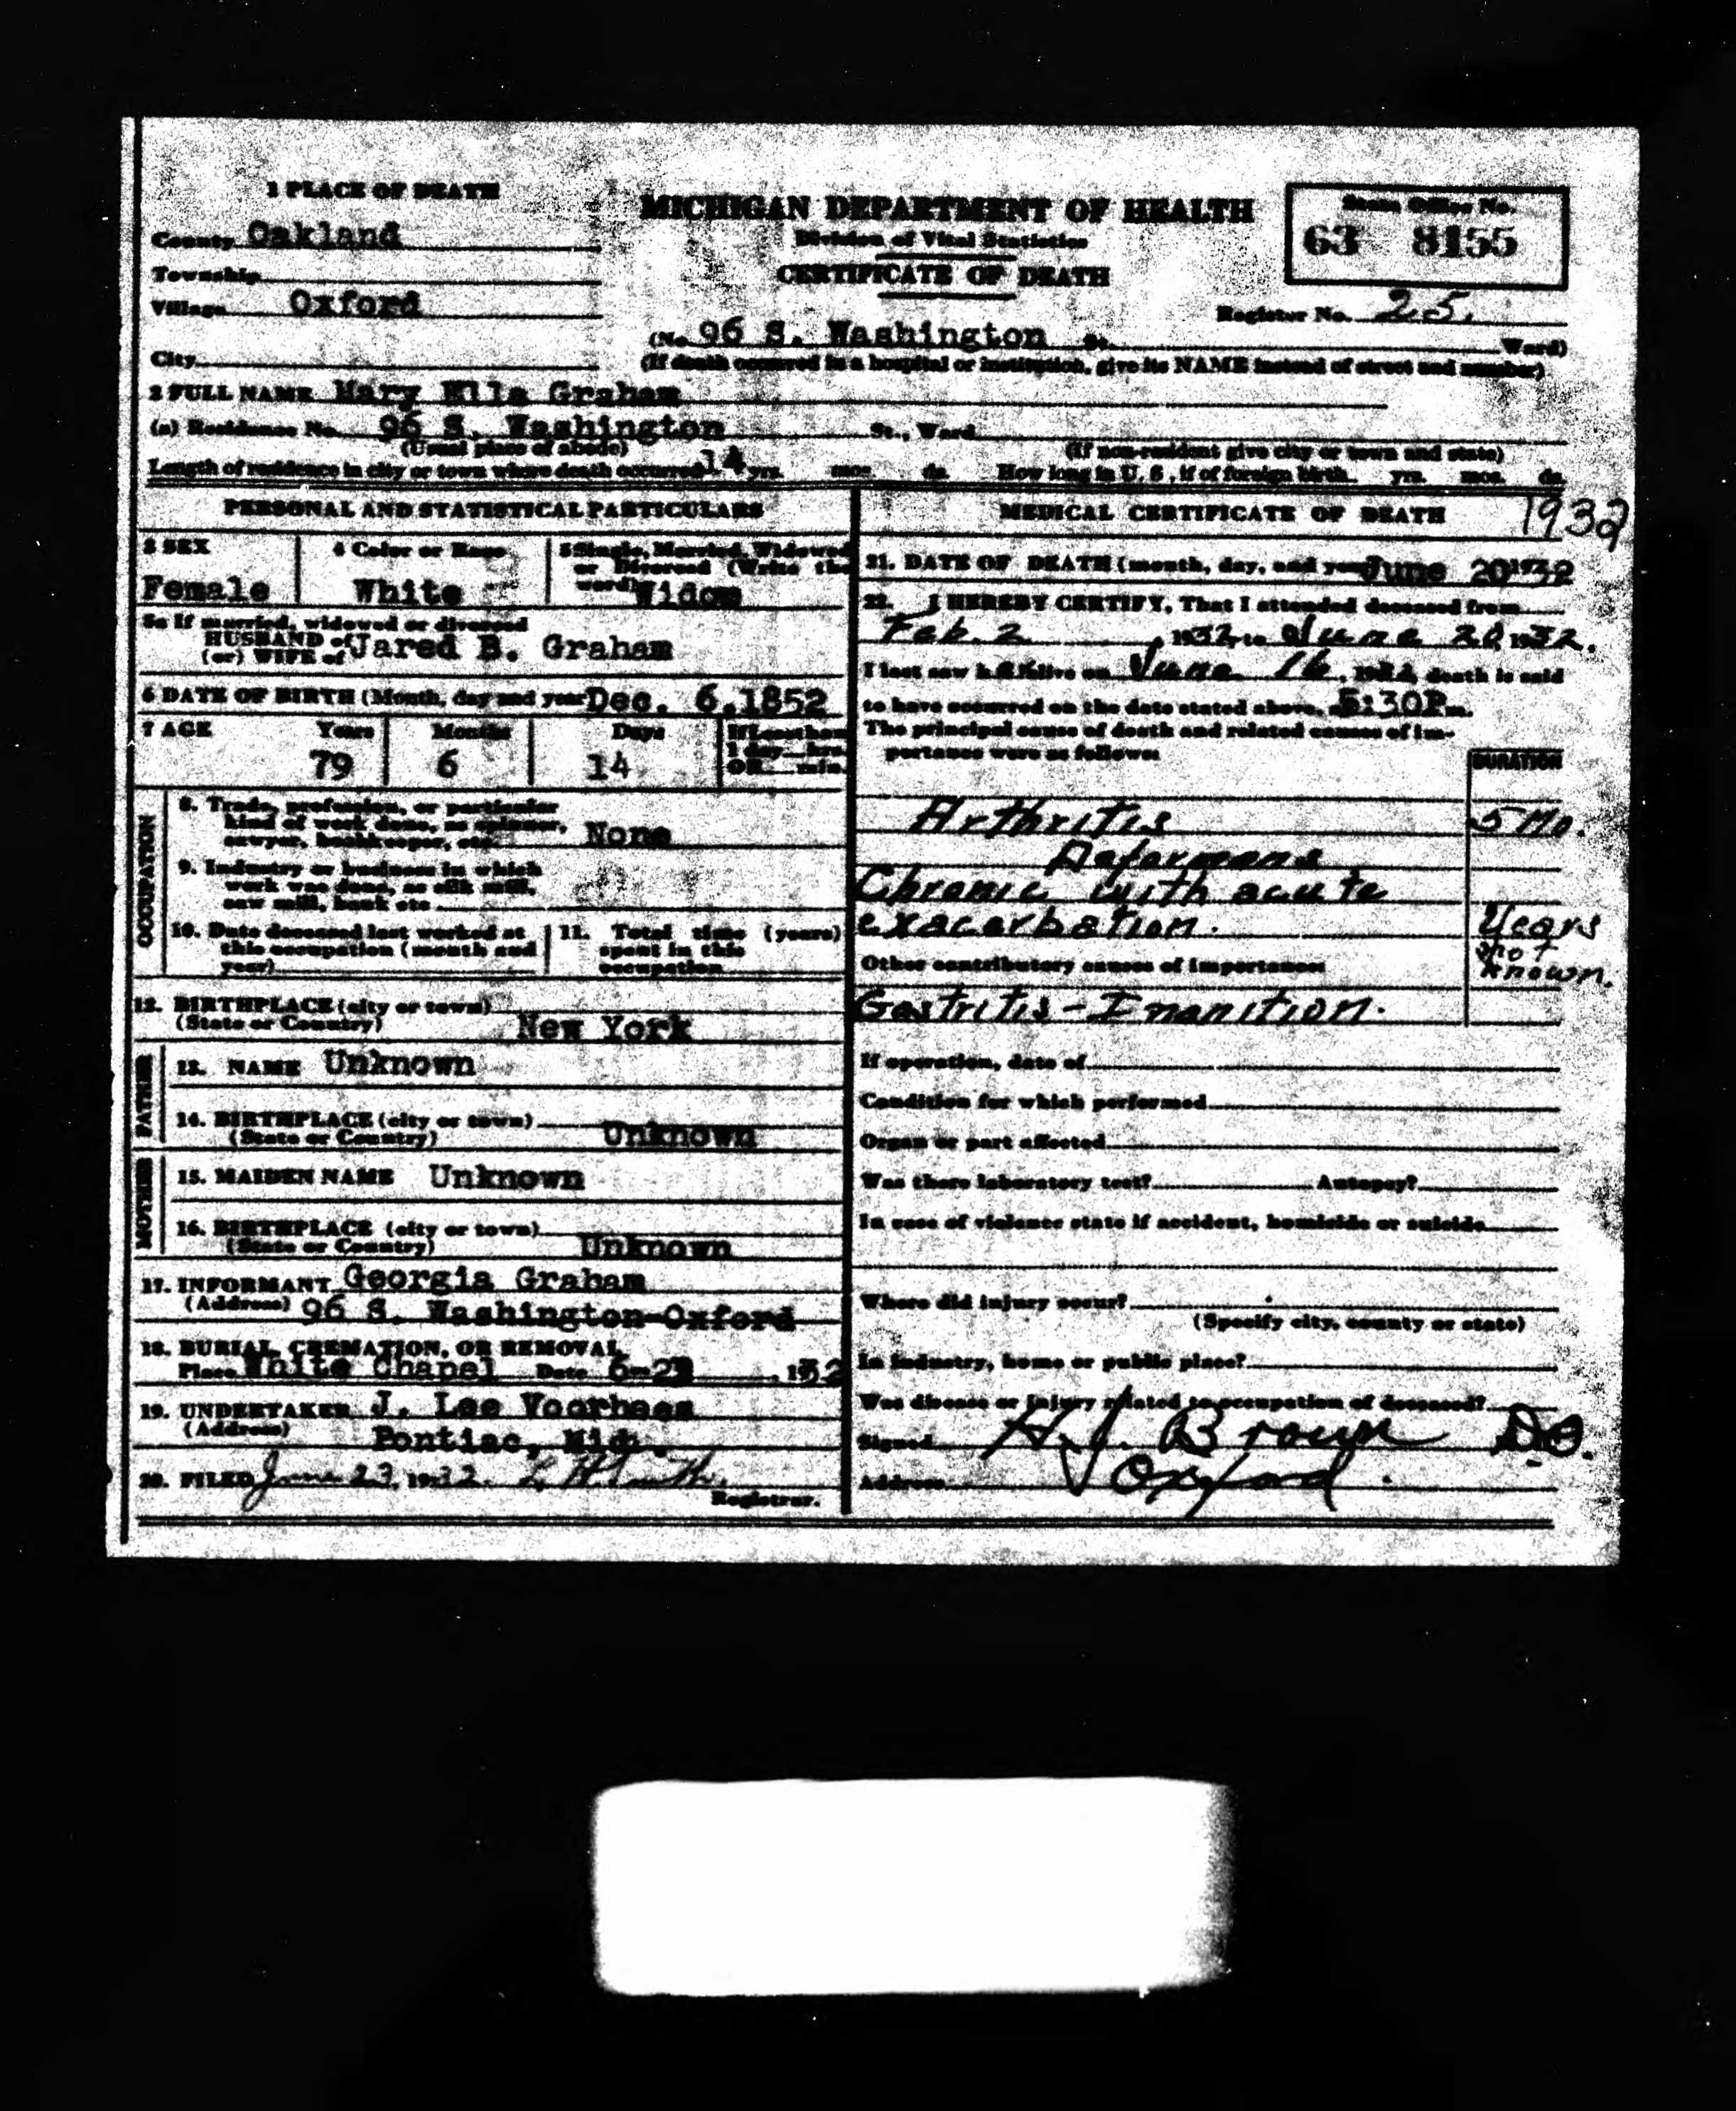 1 PLACE OF DEATH
County Oakland
Township
Village Oxford
City
MICHIGAN DEPARTMENT OF HEALTH
Division of Vital Statistics
CERTIFICATE OF DEATH
State Office No.
63 8155
Register No. 25.
(No. 96 S. Washington St. Ward)
(If death occurred in a hospital or institution, give its NAME instead of street and number)
2 FULL NAME Mary Ella Graham
(a) Residence No. 96 S. Washington St., Ward
(Usual place of abode) (If non-resident give city or town and state)
Length of residence in city or town where death occurred 14 yrs. mos. ds. How long in U. S., if of foreign birth. yrs. mos. ds.
PERSONAL AND STATISTICAL PARTICULARS
3 SEX
Female
4 Color or Race
White
5 Single, Married, Widowed
or Divorced (Write the
word) Widow
5a If married, widowed or divorced
HUSBAND of
(or) WIFE of Jared B. Graham
6 DATE OF BIRTH (Month, day and year Dec. 6.1852
7 AGE Years Months Days If Less than
1 day hrs.
OR min.
79 6 14
OCCUPATION
8. Trade, profession, or particular
kind of work done, as spinner,
sawyer, bookkeeper, etc. None
9. Industry or business in which
work was done, as silk mill,
saw mill, bank etc
10. Date deceased last worked at
this occupation (month and
year)
11. Total time (years)
spent in this
occupation
12. BIRTHPLACE (city or town)
(State or Country) New York
FATHER
13. NAME Unknown
14. BIRTHPLACE (city or town)
(State or Country) Unknown
MOTHER
15. MAIDEN NAME Unknown
16. BIRTHPLACE (city or town)
(State or Country) Unknown
17. INFORMANT Georgia Graham
(Address) 96 S. Washington-Oxford
18. BURIAL, CREMATION, OR REMOVAL
Place White Chapel Date 6-23, 1932
19. UNDERTAKER J. Lee Voorhees
(Address) Pontiac, Mich.
20. FILED June 23, 1932.
Registrar.
MEDICAL CERTIFICATE OF DEATH 1932
21. DATE OF DEATH (month, day, and year June 20 1932
22. I HEREBY CERTIFY, That I attended deceased from
Feb. 2, 1932 to June 20, 1932.
I last saw her alive on June 16, 1932, death is said
to have occurred on the date stated above, at 5:30P.m.
The principal cause of death and related causes of im-
portance were as follows:
DURATION
Arthritis 5 Mo.
Deformans
Chronic with acute
exacerbation. Years
not
known.
Other contributory causes of importance:
Gastritis - Inanition.
If operation, date of
Condition for which performed
Organ or part affected
Was there laboratory test? Autopsy?
In case of violence state if accident, homicide or suicide
Where did injury occur?
(Specify city, county or state)
In industry, home or public place?
Was disease or injury related to occupation of deceased?
Signed H. J. Brown D.O.
Address Oxford